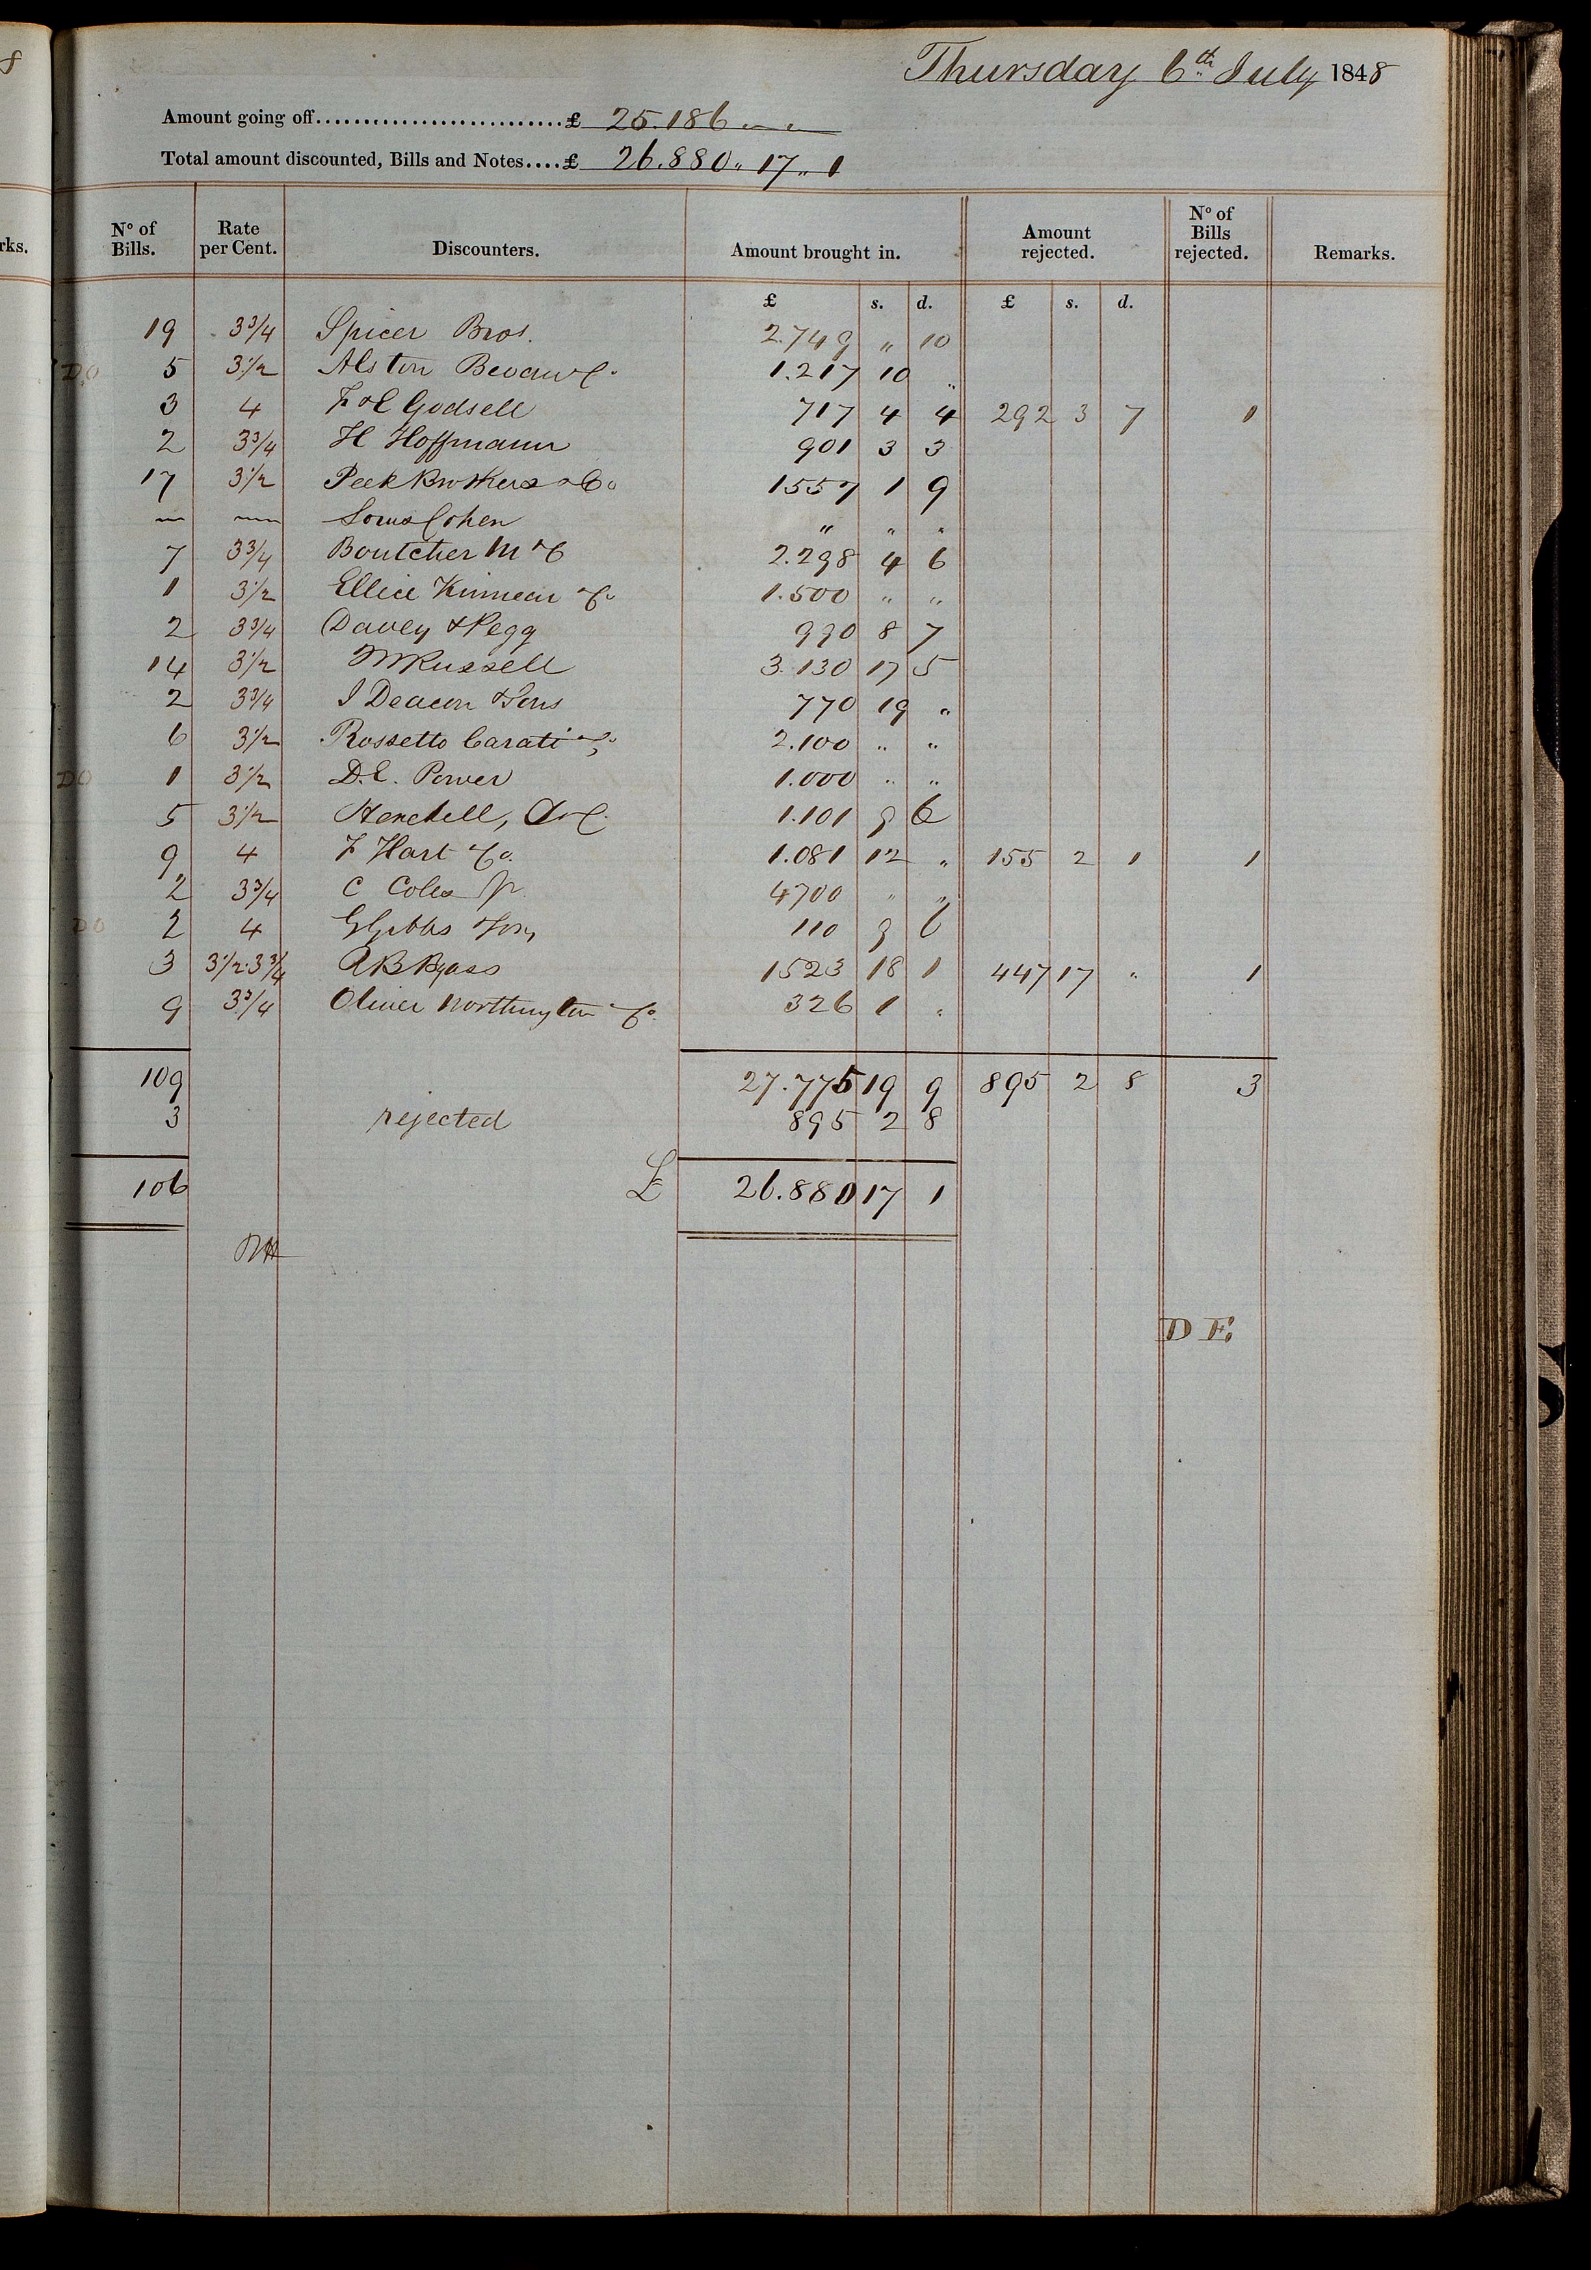 8
Thursday 6th July 1848
Amount going off £ 25.186 " "
Total amount discounted, Bills and Notes £ 26.880 " 17 " 1
rks.
No of Bills. Rate per Cent. Discounters. Amount brought in. Amount rejected. No of Bills rejected. Remarks.
£ s. d. £ s. d.
19 3 3/4 Spicer Bros. 2.749 " 10
DO 5 3 1/2 Alston Bevan & C. 1.217 10 "
3 4 F & C Godsell 717 4 4 292 3 7 1
2 3 3/4 H Hoffmann 901 3 3
17 3 1/2 Peek Brothers & Co 1557 1 9
— — Cohen " " "
7 3 3/4 Boutcher M & C 2.298 4 6
1 3 1/2 Ellice Kinnear & Co 1.500 " "
2 3 3/4 Davey & Pegg 990 8 7
14 3 1/2 Russell 3.130 17 5
2 3 3/4 J Deacon & Sons 770 19 "
6 3 1/2 Rossetto Carati & Co 2.100 " "
DO 1 3 1/2 D.E. Power 1.000 " "
5 3 1/2 & C. 1.101 9 6
9 4 F Hart & Co. 1.081 12 " 155 2 1 1
2 3 3/4 C Coles Jr. 4700 " "
DO 2 4 G Gibbs & Sons 110 9 6
3 3 1/2 . 3 3/4 R B Byass 1523 18 1 447 17 " 1
9 3 3/4 Oliver Northington & Co. 326 1 "
109 27.775 19 9 895 2 8 3
3 rejected 895 2 8
106 £ 26.880 17 1
D E.